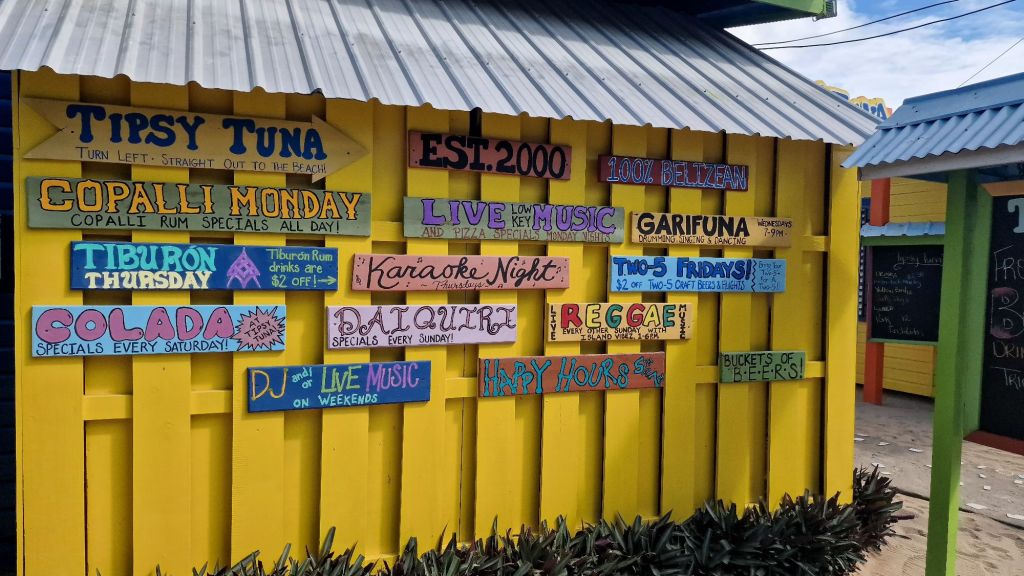 TIPSY TUNA
TURN LEFT - STRAIGHT OUT TO THE BEACH
EST. 2000
100% BELIZEAN
COPALLI MONDAY
COPALLI RUM SPECIALS ALL DAY!
LIVE LOW KEY MUSIC
AND PIZZA SPECIALS MONDAY NIGHTS
GARIFUNA WEDNESDAYS
7-9PM
DRUMMING SINGING & DANCING
TIBURON
THURSDAY
Tiburon Rum
drinks are
$2 OFF!
Karaoke Night
Thursdays
TWO-5 FRIDAYS!
$2 OFF TWO-5 CRAFT BEERS & FLIGHTS
COLADA
SPECIALS EVERY SATURDAY!
@ TIPSY
TUNA
DAIQUIRI
SPECIALS EVERY SUNDAY!
LIVE
REGGAE
MUSIC
EVERY OTHER SUNDAY WITH
ISLAND VIBEZ, 1-6PM
DJ and/or LIVE MUSIC
ON WEEKENDS
HAPPY HOURS
BUCKETS OF
BEERS!